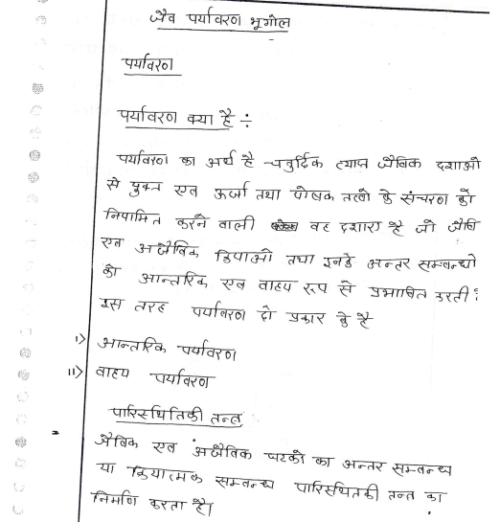 जैव पर्यावरण भूगोल
पर्यावरण
पर्यावरण क्या है ÷
पर्यावरण का अर्थ है चतुर्दिक व्याप्त जैविक दशाओ
से युक्त एव ऊर्जा तथा पोषक तत्वो के संचरण को
नियामित करने वाली वह दशाएं है जो जैवि
एव अजैविक क्रियाओ तथा इनके अन्तर सम्बन्धो
को आन्तरिक एव वाहय रूप से प्रभावित करती है
इस तरह पर्यावरण दो प्रकार के है
i> आन्तरिक पर्यावरण
ii> वाहय पर्यावरण
पारिस्थितिकी तन्त्र
जैविक एव अजैविक घटको का अन्तर सम्बन्ध
या क्रियात्मक सम्बन्ध पारिस्थितकी तन्त्र का
निर्माण करता है।